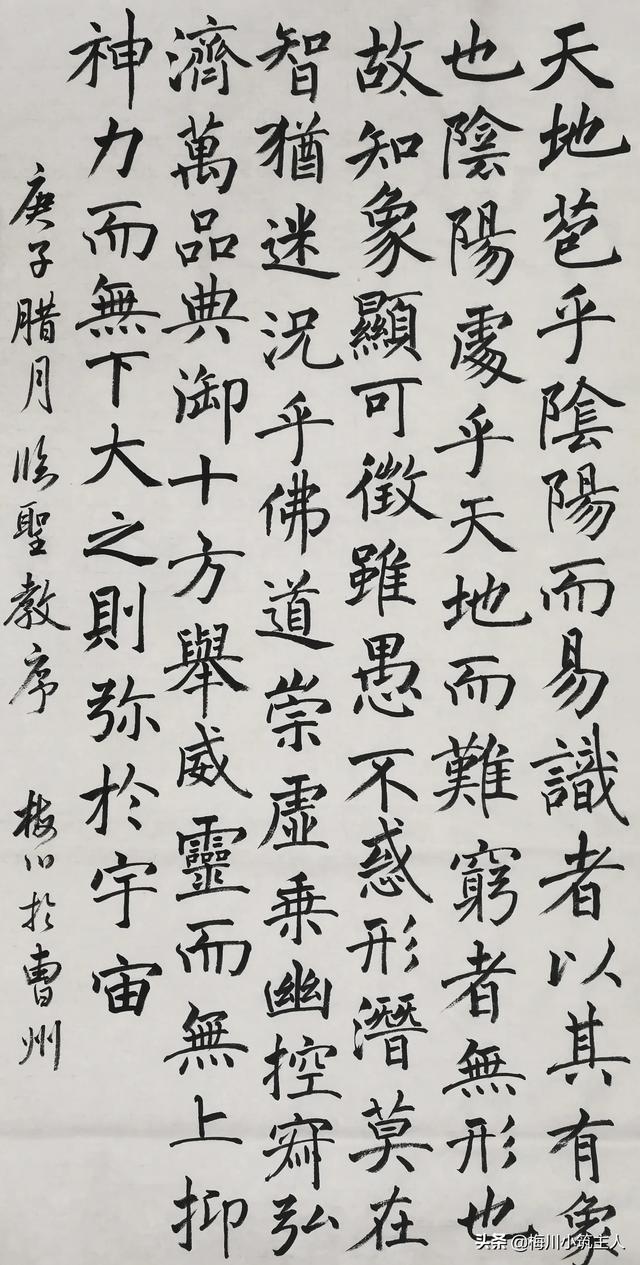 天地苞乎陰陽而易識者以其有象
也陰陽處乎天地而難窮者無形也
故知象顯可徵雖愚不惑形潛莫在
智猶迷況乎佛道崇虛乗幽控寂弘
濟萬品典御十方舉威靈而無上抑
神力而無下大之則弥於宇宙
庚子腊月临聖教序 梅川於曹州
头条 @梅川小筑主人